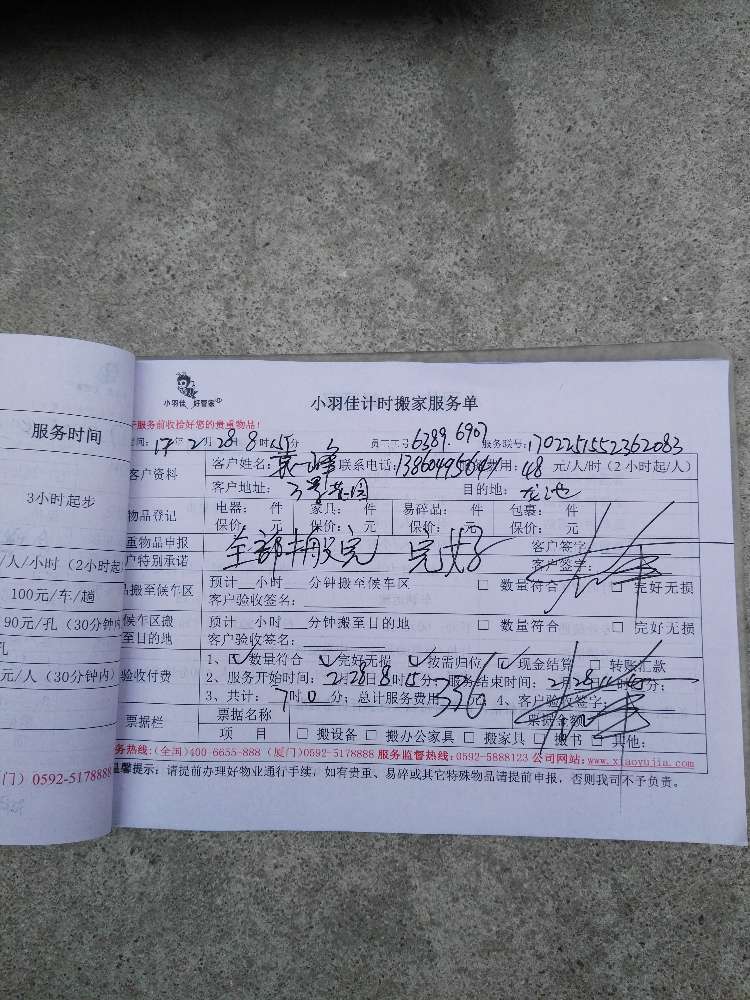 服务时间
3小时起步
/人/小时（2小时起
100元/车/趟
90元/孔（30分钟内
孔
元/人（30分钟内）
门）0592-5178888
小羽佳 好管家
小羽佳计时搬家服务单
服务前收拾好您的贵重物品！
间：17年2月28日8时45分 员工工号6389.6907 服务联号：1702251552362083
客户资料 客户姓名： 联系电话： 费用：48元/人/时（2小时起/人）
客户地址： 目的地：龙池
物品登记 电器： 件 家具： 件 易碎品： 件 包裹： 件
保价： 元 保价： 元 保价： 元 保价： 元
重物品申报 全部搬完 完好 客户签字：
户特别承诺 客户签字：
品搬至候车区 预计__小时__分钟搬至候车区 □ 数量符合 □ 完好无损
客户验收签名：
候车区搬 预计__小时__分钟搬至目的地 □ 数量符合 □ 完好无损
至目的地 客户验收签名：
验收付费 1、☑ 数量符合 ☑ 完好无损 ☑ 按需归位 ☑ 现金结算 □ 转账汇款
2、服务开始时间：2月28日8时 分；服务结束时间：2月28日 时45分；
3、共计：7时0分；总计服务费用：336元；4、客户验收签字：
票据栏 票据名称 票据金额
项 目 □ 搬设备 □ 搬办公家具 □ 搬家具 □ 搬书 □ 其他：
务热线：（全国）400-6655-888（厦门）0592-5178888 服务监督热线：0592-5888123 公司网站：www.xiaoyujia.com
温馨提示：请提前办理好物业通行手续，如有贵重、易碎或其它特殊物品请提前申报，否则我司不予负责。